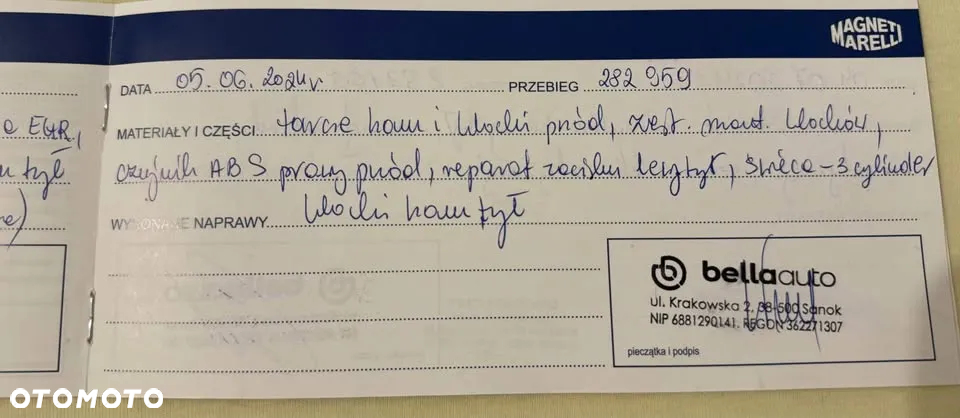 MAGNETI
MARELLI
DATA 05.06.2024r. PRZEBIEG 282 959
MATERIAŁY I CZĘŚCI tarcze ham i klocki przód, zest. mont. klocków,
czujnik ABS prawy przód, reparat zacisku lewy tył, świeca - 3 cylinder
WYKONANE NAPRAWY klocki ham tył
EGR,
tył
bellaauto
ul. Krakowska 2, 38-500 Sanok
NIP 6881290141, REGON 362271307
pieczątka i podpis
OTOMOTO